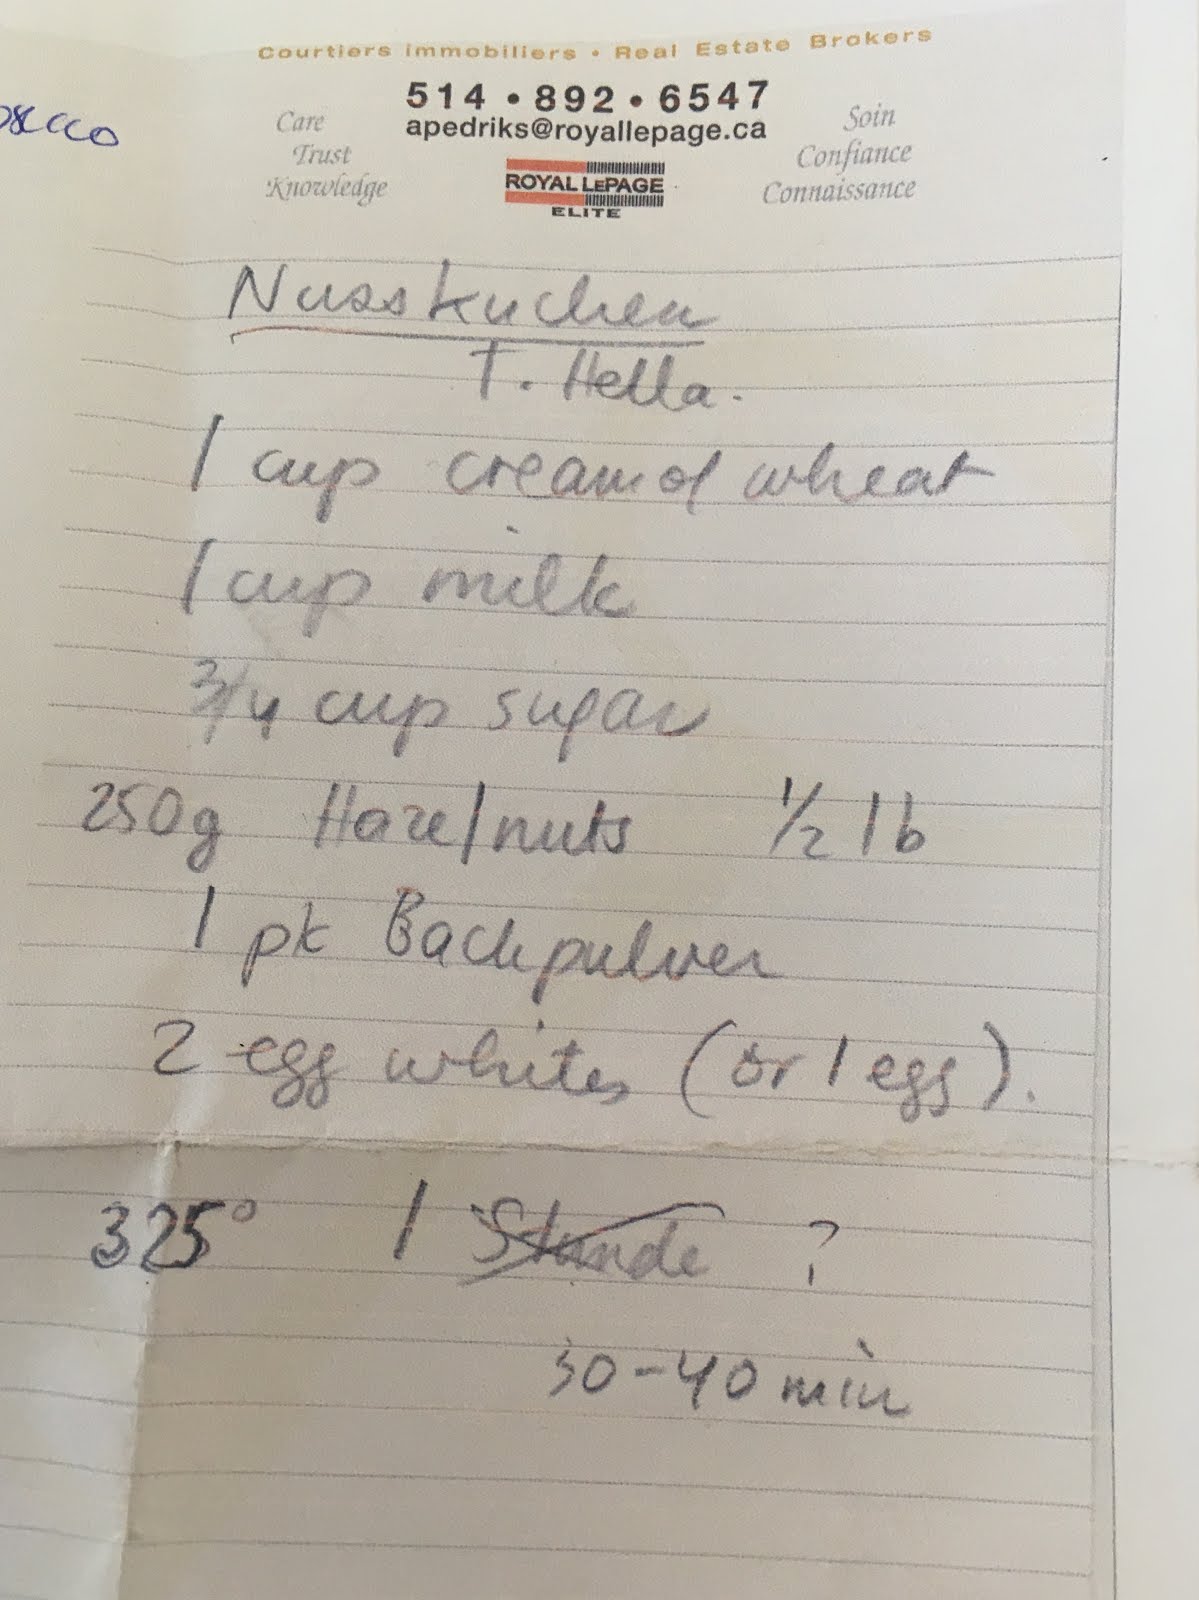 Courtiers immobiliers • Real Estate Brokers
514 • 892 • 6547
apedriks@royallepage.ca
Care
Trust
Knowledge
Soin
Confiance
Connaissance
ROYAL LEPAGE
ELITE
Nusskuchen
T. Hella.
1 cup cream of wheat
1 cup milk
3/4 cup sugar
250g Hazelnuts 1/2 lb
1 pk Backpulver
2 egg whites (or 1 egg).
325° 1 Stunde ?
30-40 min